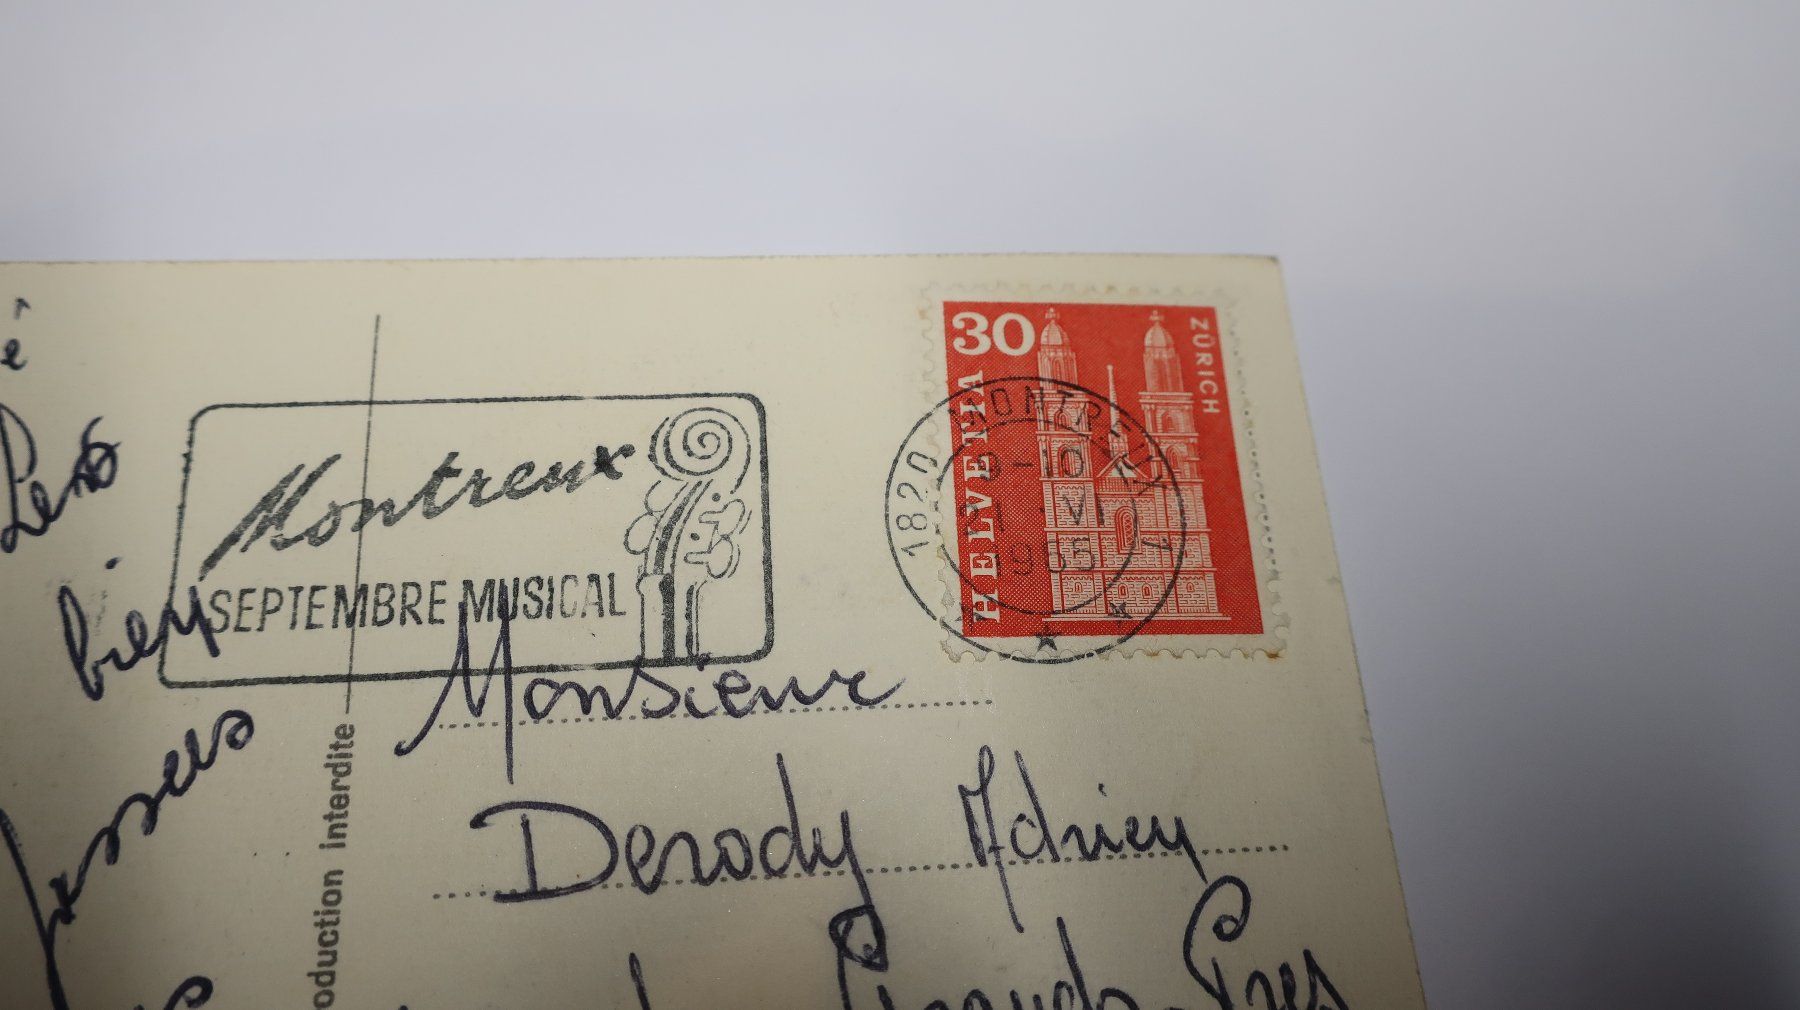 30
HELVETIA
ZÜRICH
1820 MONTREUX 1
9-10
VI
1965
Montreux
SEPTEMBRE MUSICAL
Monsieur
Derody Adrien
Grands Prés
oduction interdite
Les
bien